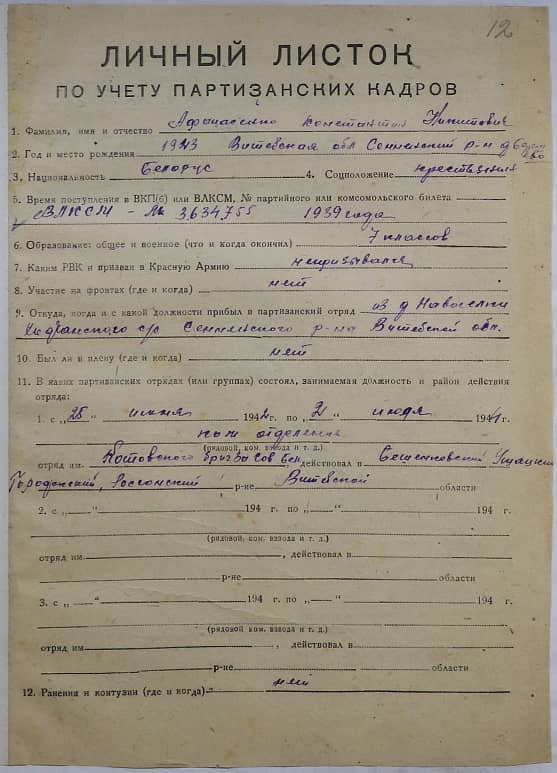 12
ЛИЧНЫЙ ЛИСТОК
ПО УЧЕТУ ПАРТИЗАНСКИХ КАДРОВ
1. Фамилия, имя и отчество Афонасенко Константин Никитович
2. Год и место рождения 1923 Витебская обл Сеннинский р-н д
3. Национальность Белорус 4. Соцположение крестьянин
5. Время поступления в ВКП(б) или ВЛКСМ, № партийного или комсомольского билета
ВЛКСМ - № 3634755 1939 года
6. Образование: общее и военное (что и когда окончил) 7 классов
7. Каким РВК и призван в Красную Армию непризывался
8. Участие на фронтах (где и когда) нет
9. Откуда, когда и с какой должности прибыл и партизанский отряд из д Новоселки
с/с Сеннинского р-на Витебской обл.
10. Был ли в плену (где и когда) нет
11. В каких партизанских отрядах (или группах) состоял, занимаемая должность и район действия
отряда:
1. с „25" июня 1942 г. по „2" июля 1944 г.
ком отделения
(рядовой, ком. взвода и т. д.)
отряд им. Котовского бриг , действовал в Бешенковский, Ушацкий
Городокский, Россонский р-не Витебской области
2. с „—" 194 г. по „—" 194 г.
(рядовой, ком. взвода и т. д.)
отряд им. , действовал в
р-не области
3. с „—" 194 г. по „—" 194 г.
(рядовой ком. взвода и т. д.)
отряд им , действовал в
р-не области
12. Ранения и контузии (где и когда) нет